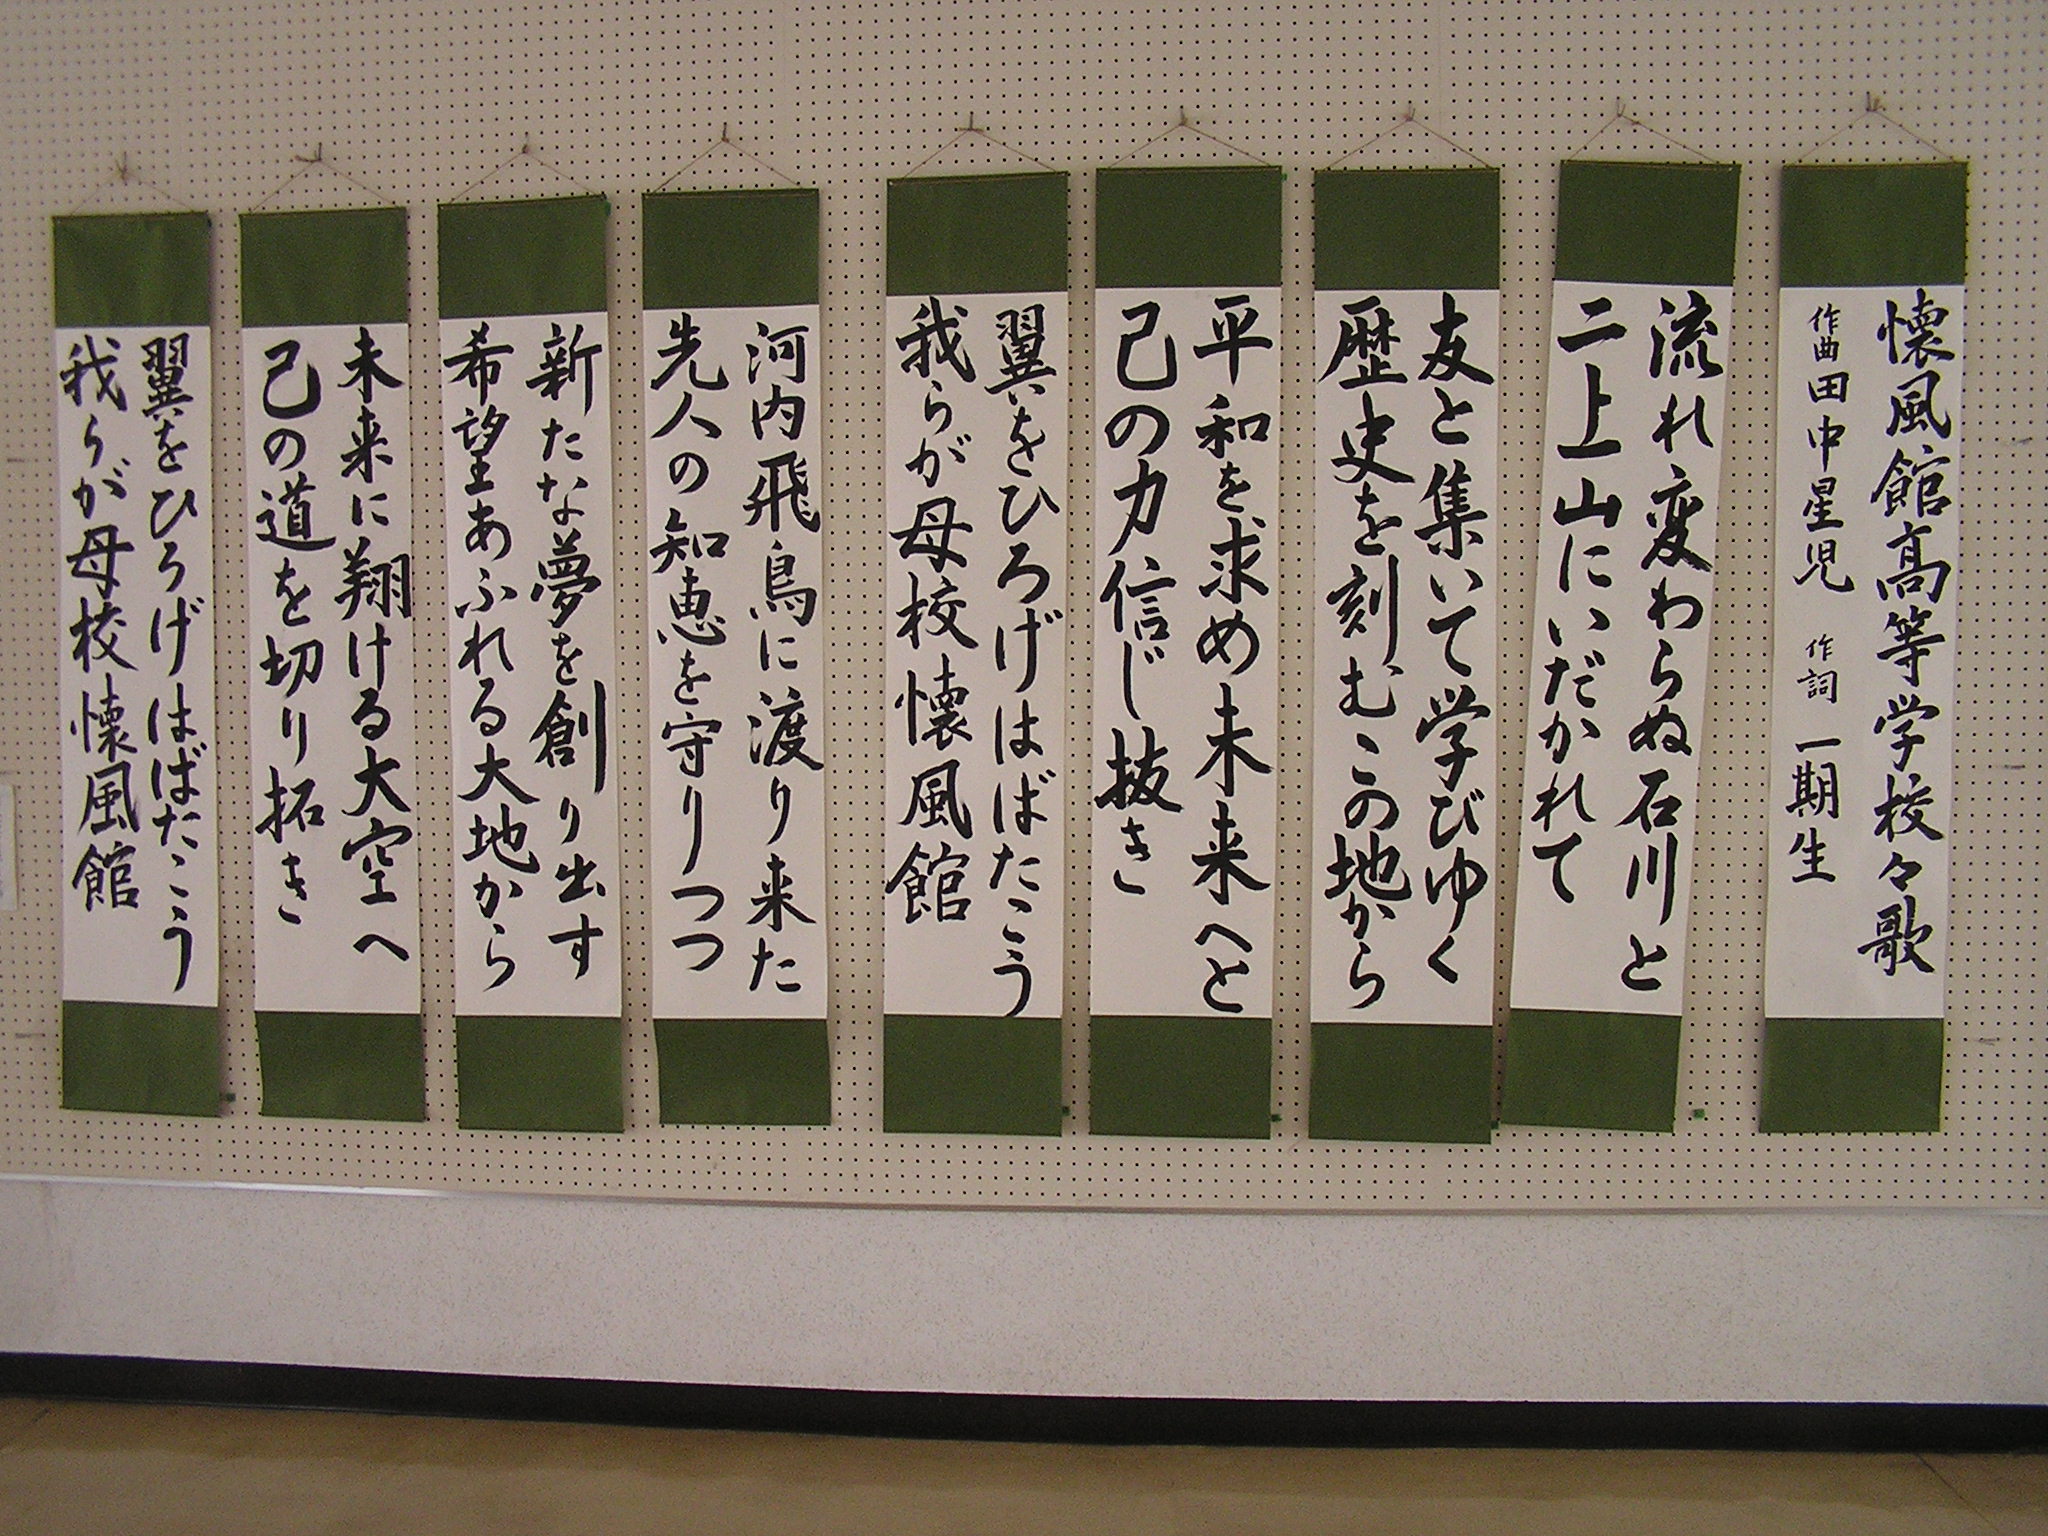 懐風館高等学校々歌
作曲田中星児 作詞 一期生
流れ変わらぬ石川と
二上山にいだかれて
友と集いて学びゆく
歴史を刻むこの地から
平和を求め未来へと
己の力信じ抜き
翼をひろげはばたこう
我らが母校懐風館
河内飛鳥に渡り来た
先人の知恵を守りつつ
新たな夢を創り出す
希望あふれる大地から
未来に翔ける大空へ
己の道を切り拓き
翼をひろげはばたこう
我らが母校懐風館